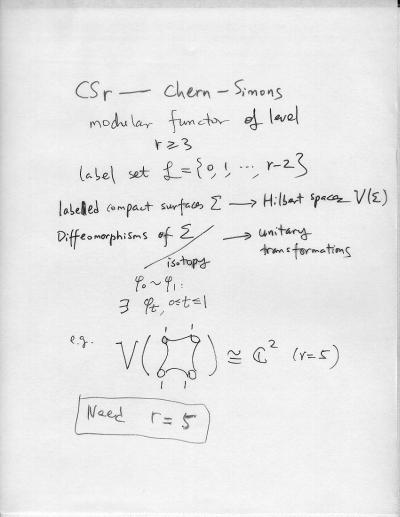 CSr — Chern-Simons
modular functor of level
r ≥ 3
label set L = {0, 1, ..., r-2}
labelled compact surfaces Σ → Hilbert spaces V(Σ)
Diffeomorphisms of Σ / isotopy → unitary transformations
φ₀ ~ φ₁ :
∃ φt, 0≤t≤1
e.g. V( 1 1 1 1 ) ≅ ℂ² (r=5)
Need r = 5